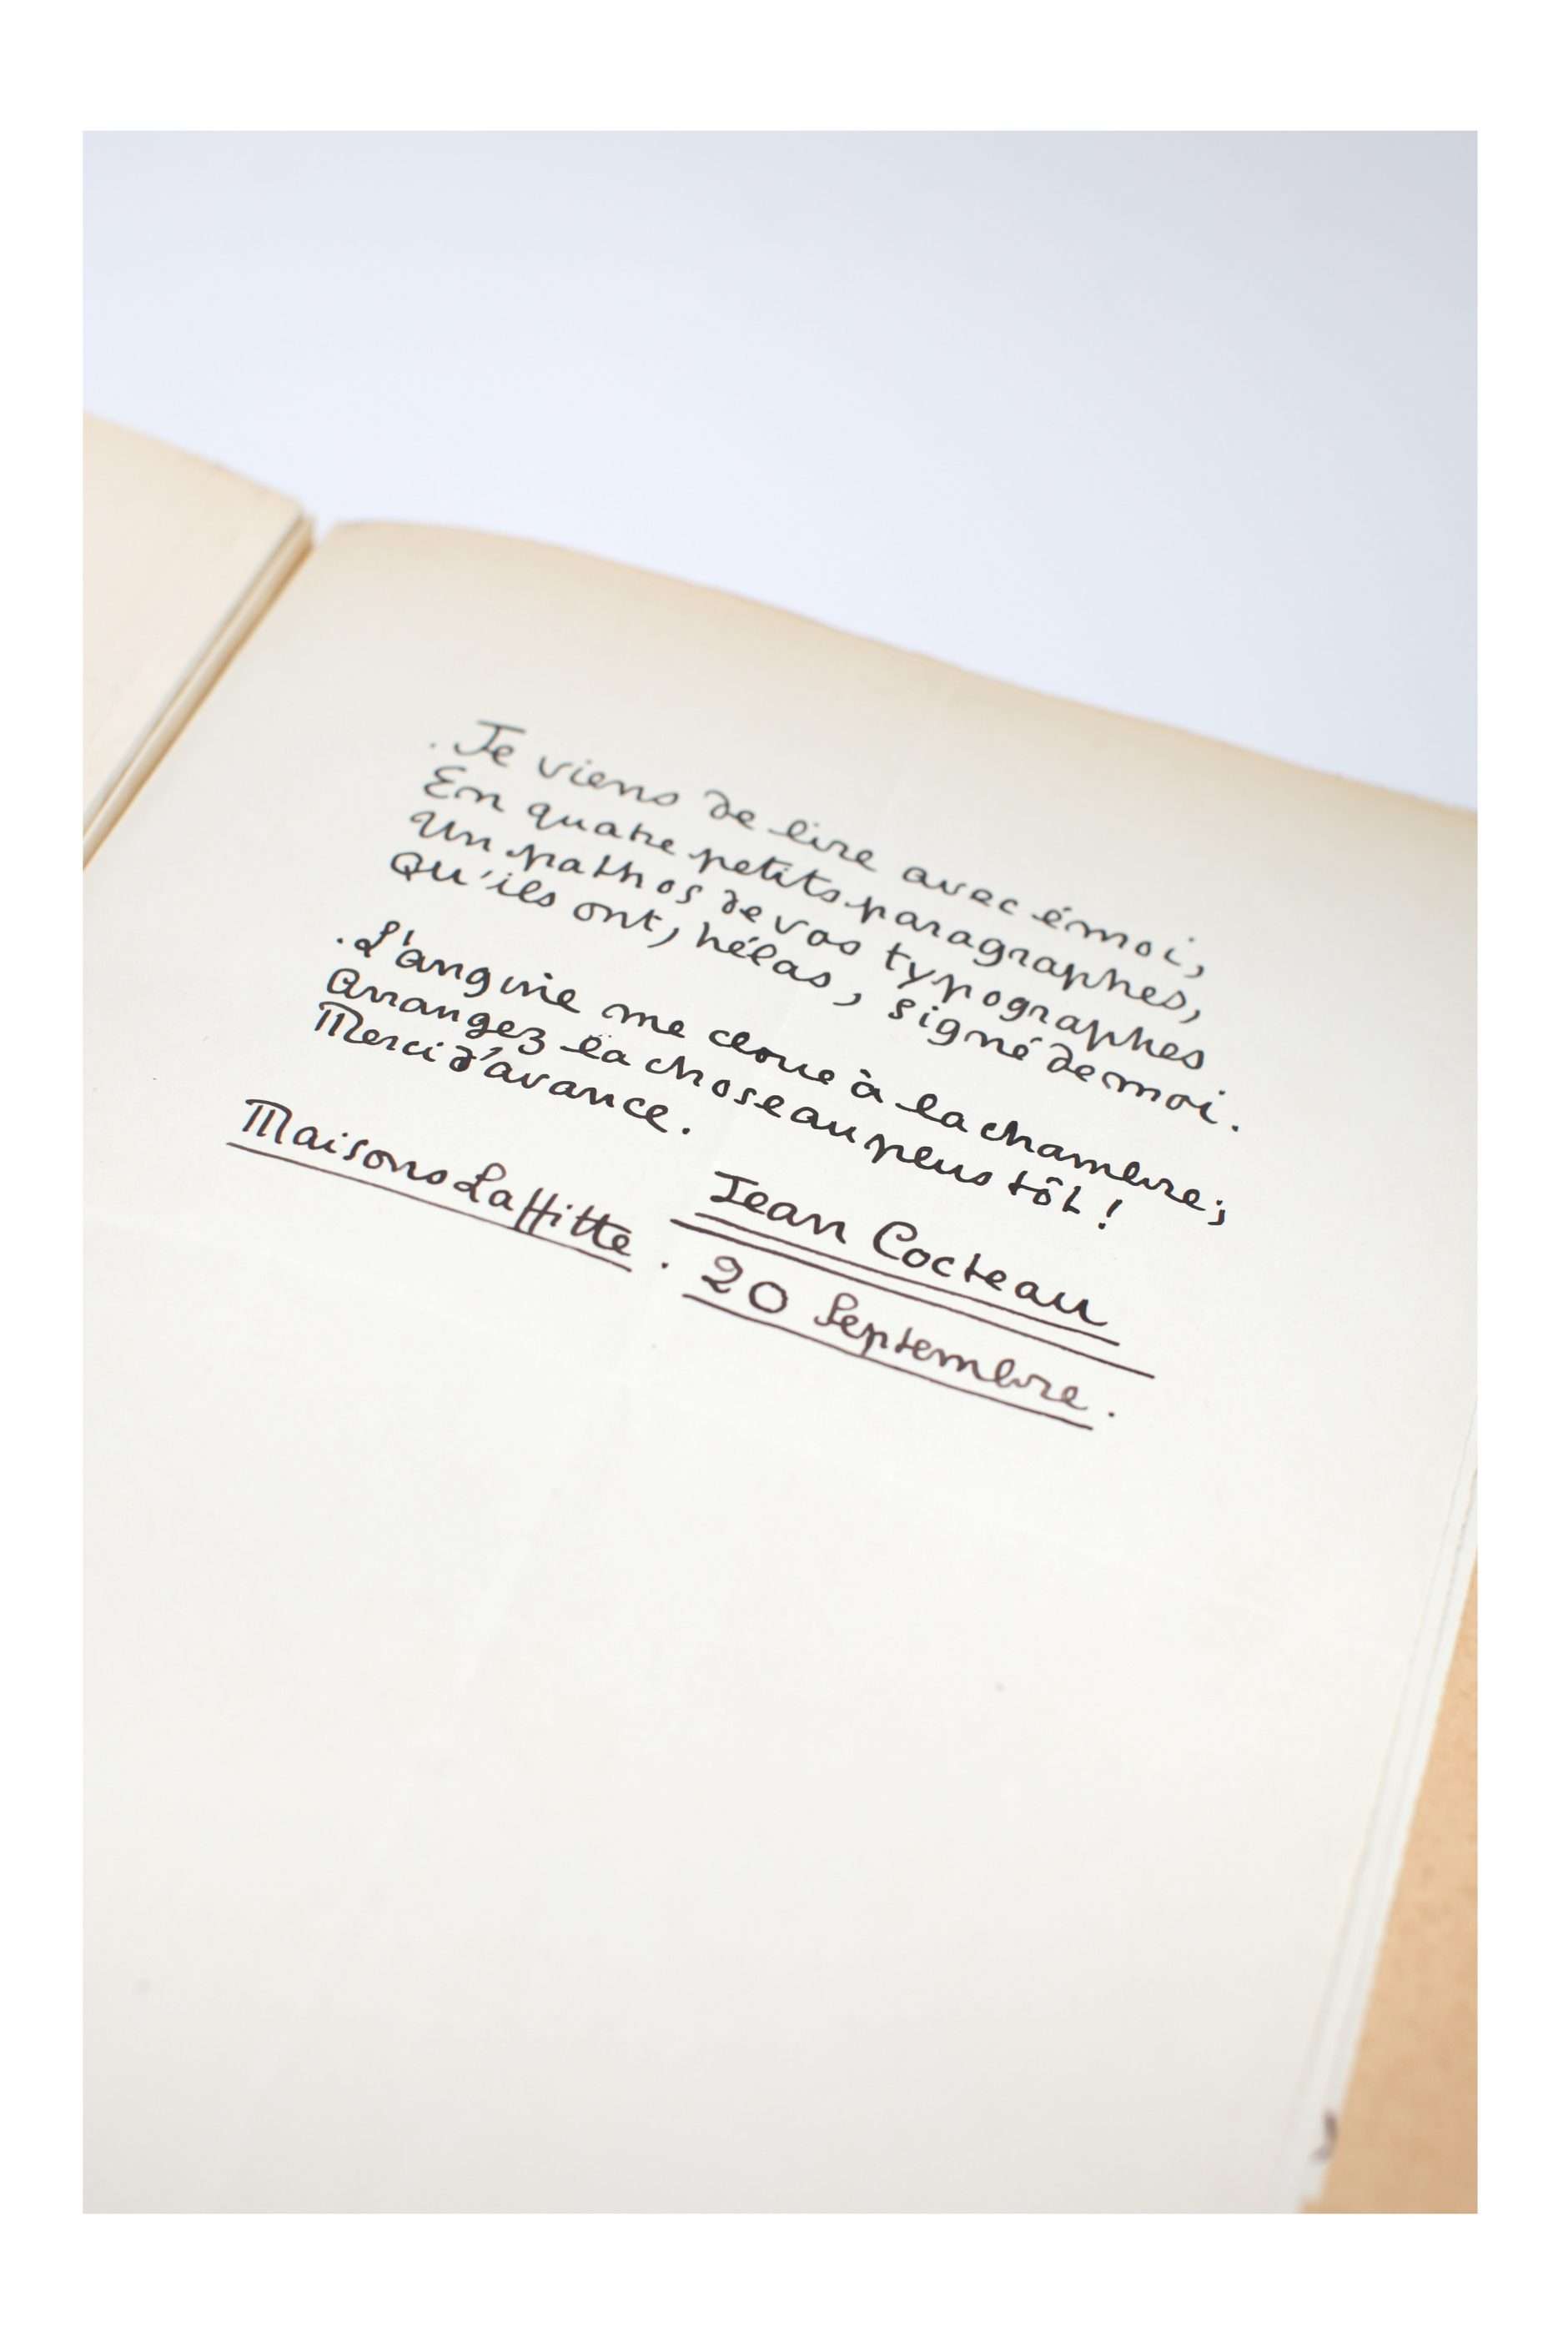 . Je viens de lire avec émoi,
En quatre petits paragraphes,
Un pathos de vos typographes
Qu'ils ont, hélas, signé de moi.
. L'angine me cloue à la chambre;
Arrangez la chose au plus tôt !
Merci d'avance.
Jean Cocteau
Maisons Laffitte . 20 Septembre .